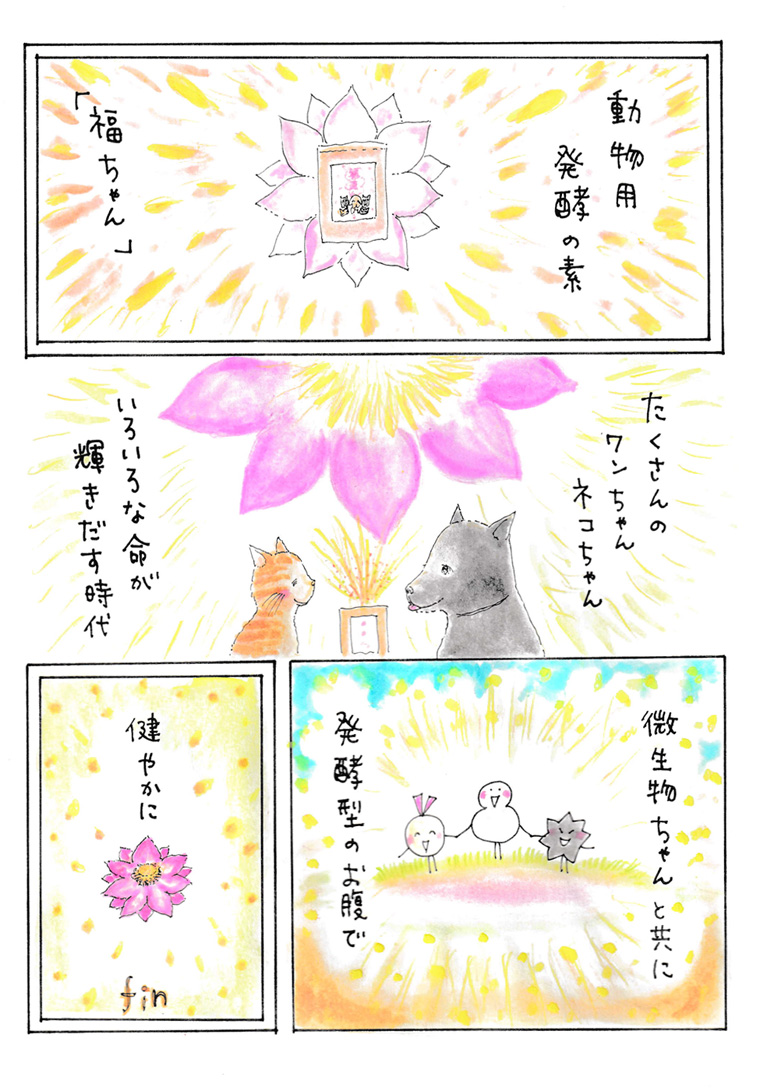 動物用
発酵の素
「福ちゃん」
たくさんの
ワンちゃん
ネコちゃん
いろいろな命が
輝きだす時代
微生物ちゃんと共に
発酵型のお腹で
健やかに
fin